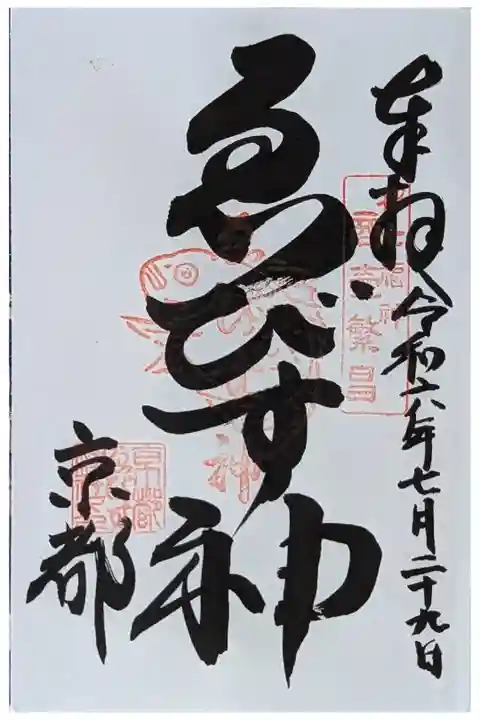 奉拝 令和六年七月二十九日
ゑびす神
京都
神
商売繁昌